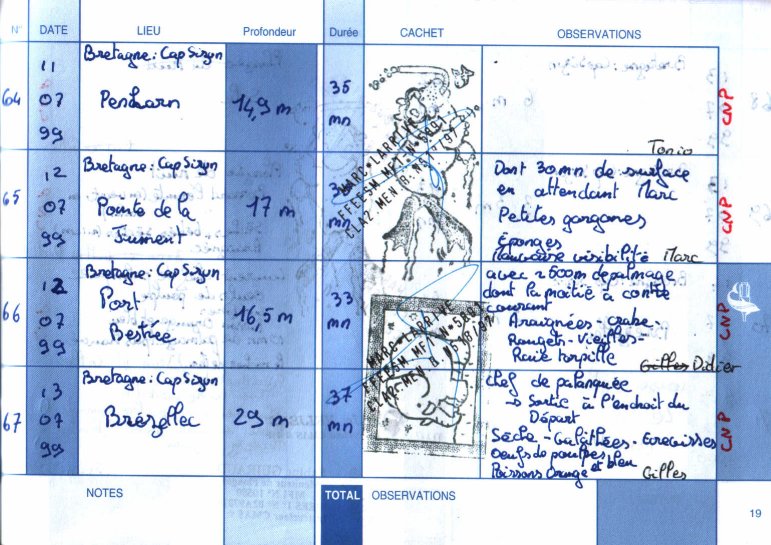 N° DATE LIEU Profondeur Durée CACHET OBSERVATIONS
64
11
07
99
Bretagne: Cap Sizun
Penharn
14,9 m
35
mn
Tonio
CNP
65
12
07
99
Bretagne: Cap Sizun
Pointe de la
Jument
17 m
mn
MARC LARRIVE
FFESSM MF1 N°
Dont 30mn de surface
en attendant Marc
Petites gorgones
Éponges
Mauvaise visibilité Marc
CNP
66
12
07
99
Bretagne: Cap Sizun
Port
Bestrée
16,5 m
33
mn
avec 2500m de palmage
dont la moitié à contre
courant
Araignées - crabe -
Rougets - Vieilles -
Raie torpille
Gilles Didier
CNP
67
13
07
99
Bretagne: Cap Sizun
Brézellec
29 m
37
mn
Chef de palanquée
→ Sortie à l'endroit du
Départ
Sèche - Galathées - Ecrevisses
Oeufs de poulpes
Poissons Orange et bleu
Gilles
CNP
NOTES TOTAL OBSERVATIONS
19